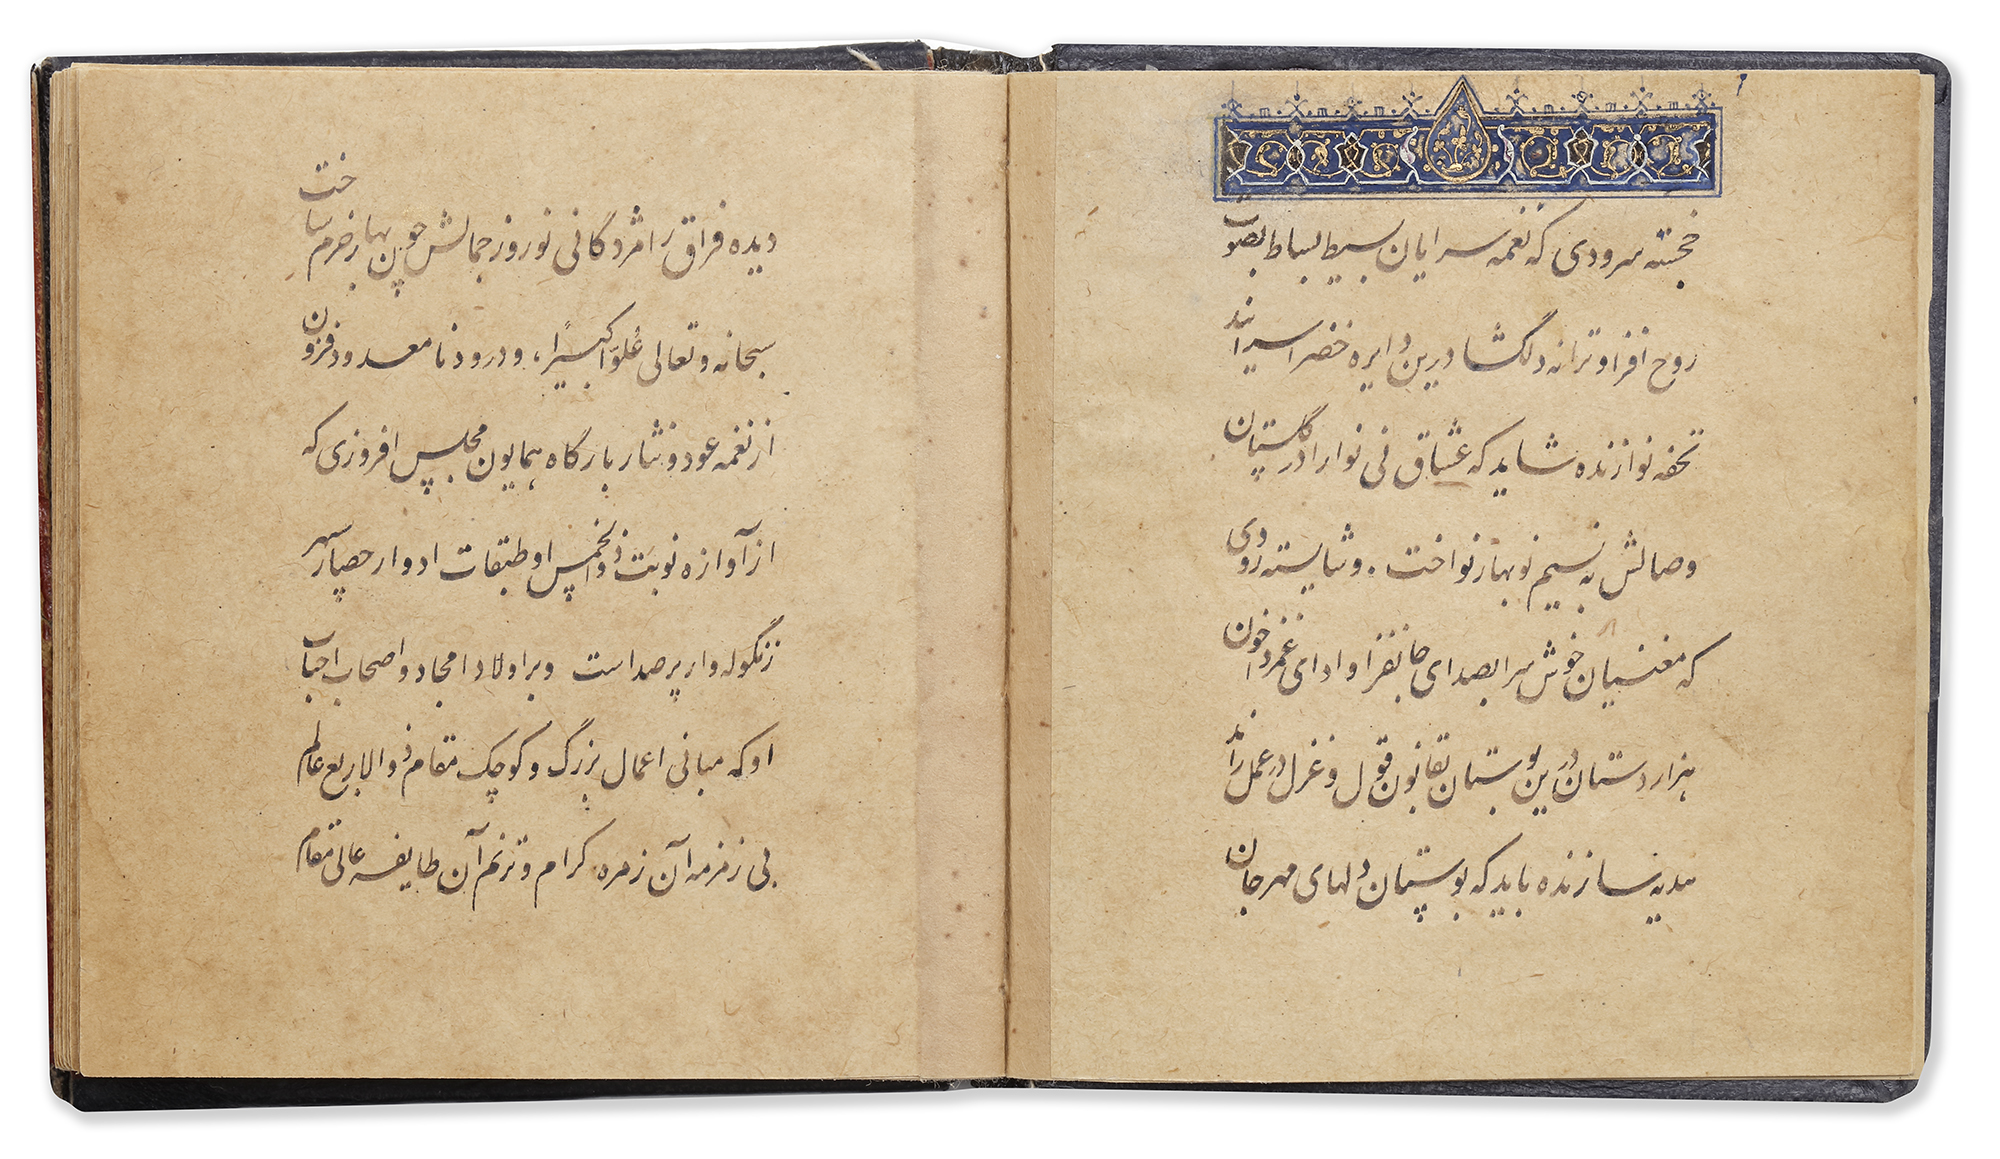 خجسته سرودی که نغمه سرایان بسیط بساط بصوت
روح افزا و ترانه دلگشا درین دایره خضرا سرایند
تحفه نوازنده شاید که عشاق فی نوا را در گلستان
وصالش به نسیم نوبهار نواخت . و شایسته رودی
که مغنیان خوش سرا بصدای جانفزا و ادای غمزدا خون
هزاردستان درین بوستان بقانون قول و غزل در عمل آرند
هدیه سازنده باید که بوستان دلهای مهرجان
دیده فراق را مژدگانی نوروز جمالش چون بهار خرم ساخت
سبحانه و تعالی عُلوّاً کبیراً، و درود نامعدود فزون
از نغمه عود و نثار بارگاه همایون مجلس افروزی که
از آوازه نوبت ذوالخمس او طبقات ادوار حصار سپهر
زنگوله وار پر صداست و بر اولاد امجاد و اصحاب احباب
او که مبانی اعمال بزرگ و کوچک مقام ذوالاربع عالم
بی زمزمه آن زمره کرام و ترنم آن طایفه عالی مقام